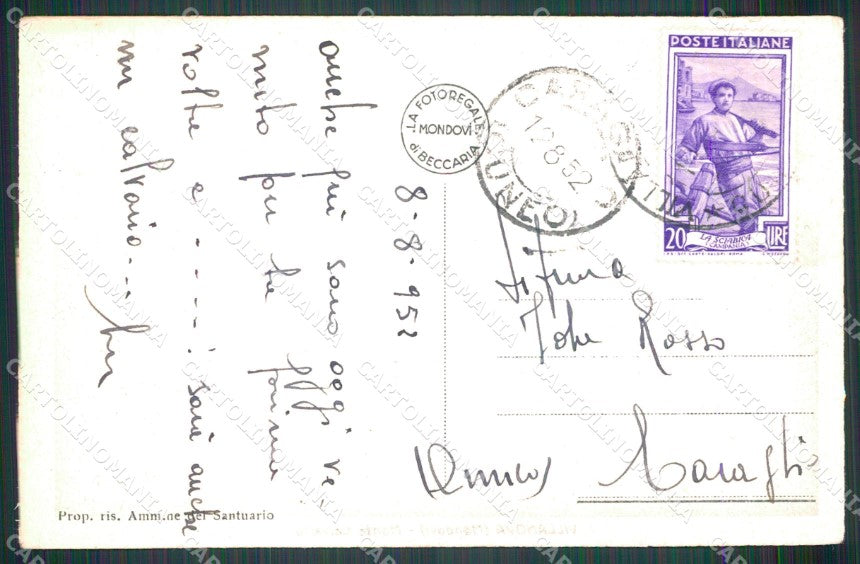 anche qui sono oggi ve
nuto per la prima
volta e - - - - ! sarà anche
un calvario...
8-8-952
LA FOTOREGALE
MONDOVÌ
di BECCARIA
CARAGLIO
12 8 52
CUNEO
POSTE ITALIANE
20 LIRE
LA SCIABICA
CAMPANIA
Rosso
(Cuneo) Caraglio
Prop. ris. Amm.ne del Santuario
CARTOLINOMANIA